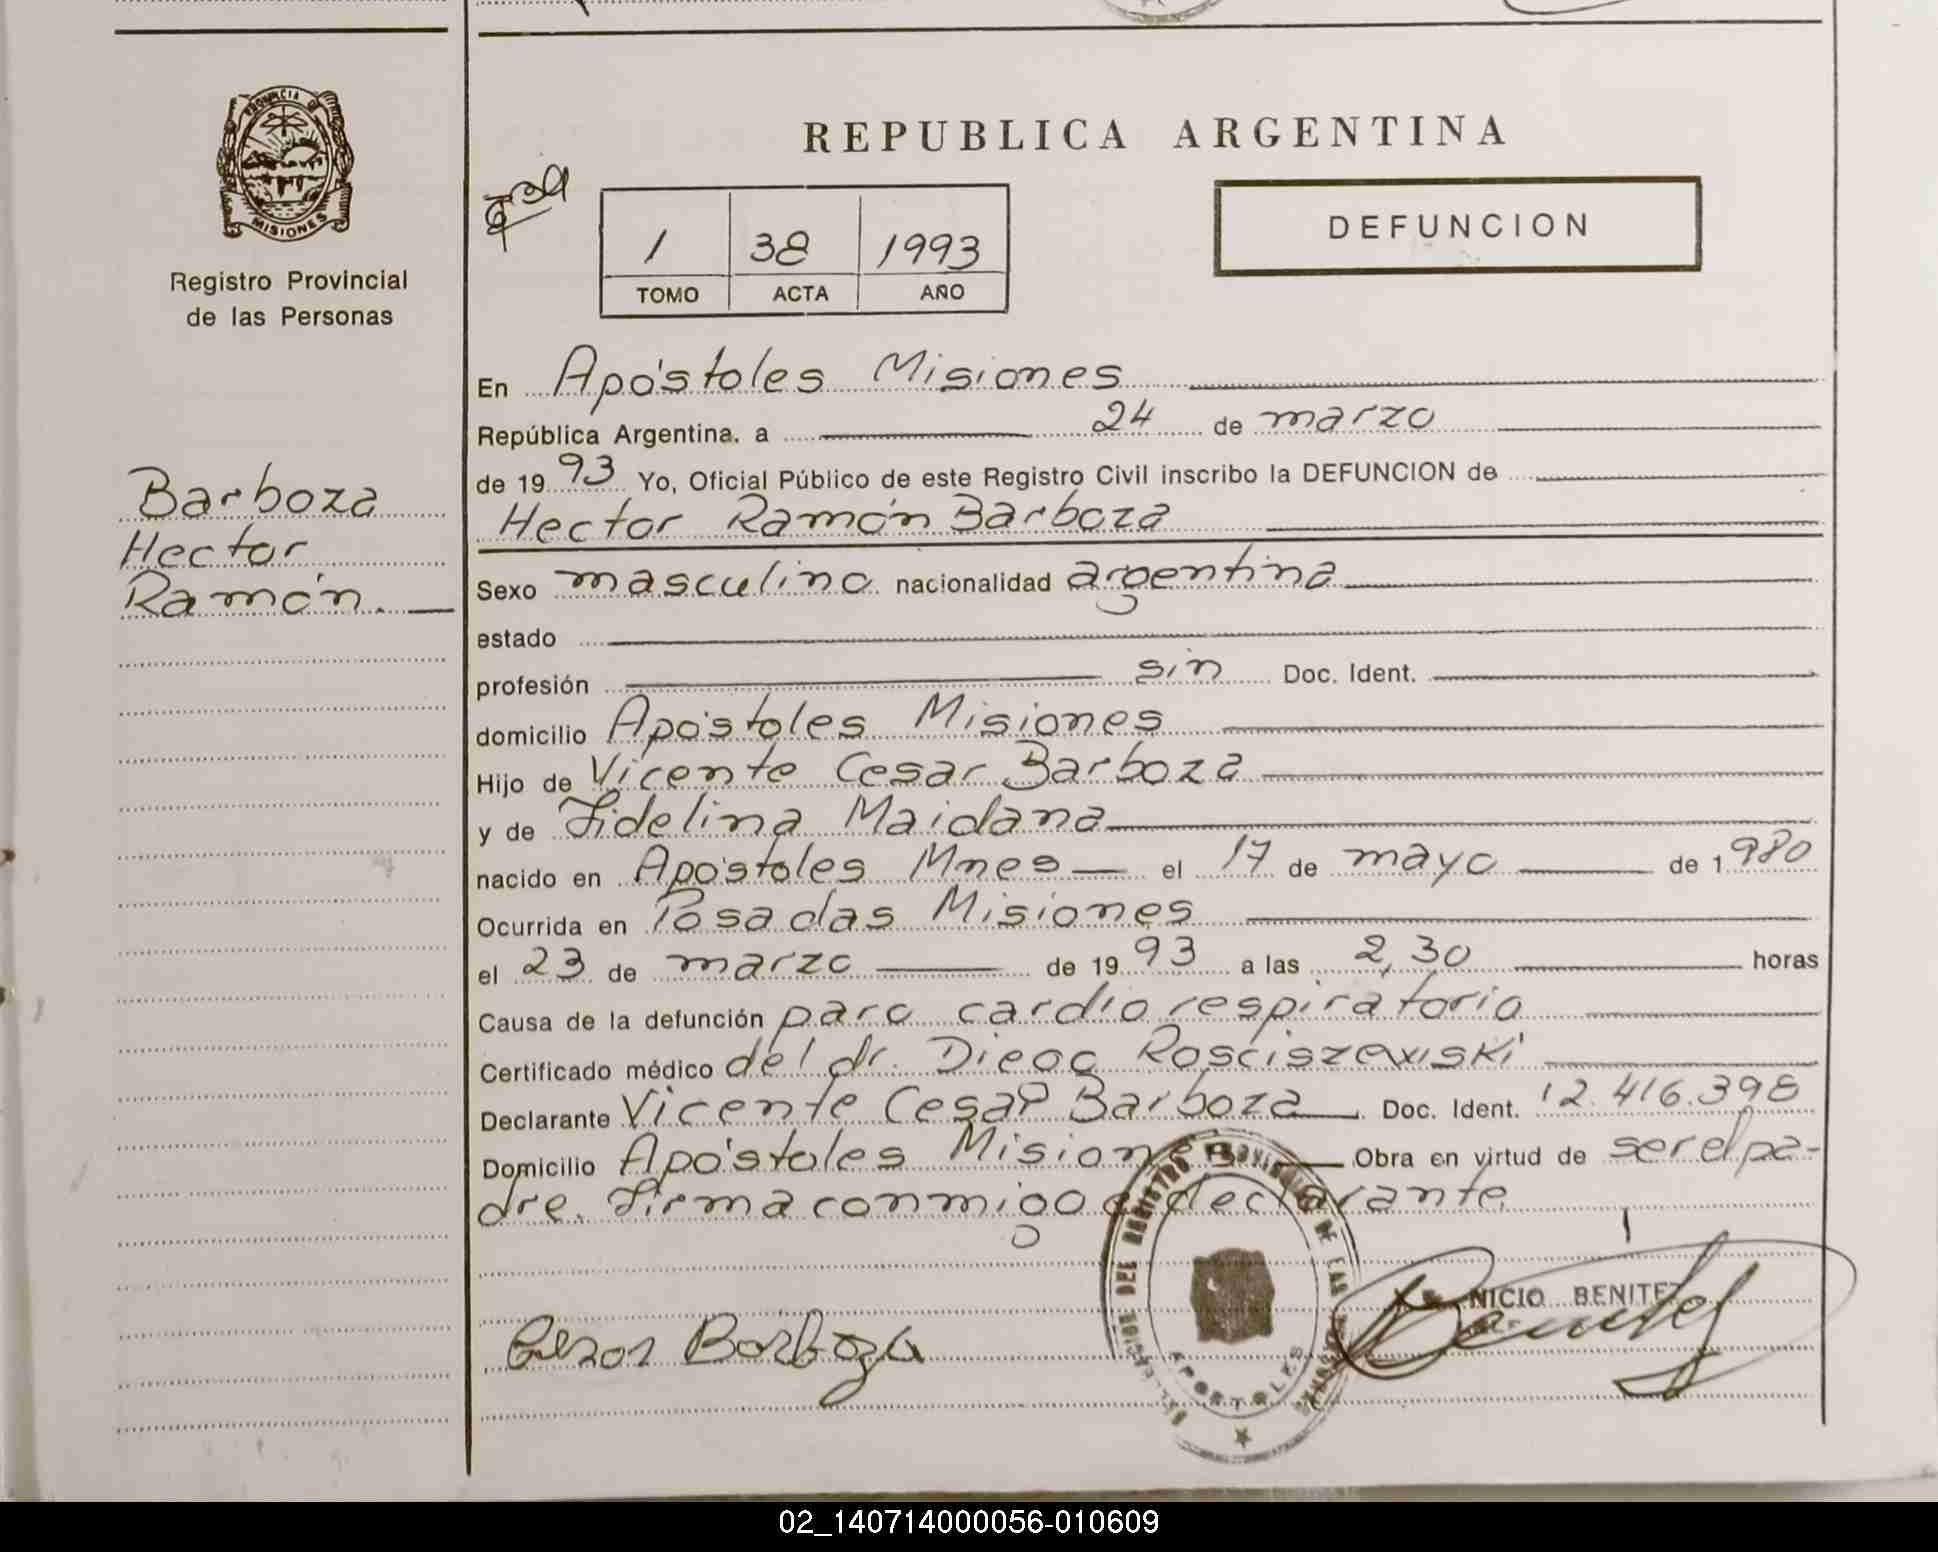 REPUBLICA ARGENTINA
PROVINCIA DE
MISIONES
Registro Provincial
de las Personas
1 38 1993
TOMO ACTA AÑO
DEFUNCION
Barboza
Hector
Ramón.
En Apóstoles Misiones
República Argentina, a 24 de marzo
de 1993 Yo, Oficial Público de este Registro Civil inscribo la DEFUNCION de
Hector Ramón Barboza
Sexo masculino nacionalidad argentina
estado
profesión sin Doc. Ident.
domicilio Apóstoles Misiones
Hijo de Vicente Cesar Barboza
y de Fidelina Maidana
nacido en Apóstoles Mnes el 17 de mayo de 1980
Ocurrida en Posadas Misiones
el 23 de marzo de 1993 a las 2,30 horas
Causa de la defunción paro cardio respiratorio
Certificado médico del dr. Diego Rosciszewski
Declarante Vicente Cesar Barboza Doc. Ident. 12.416.398
Domicilio Apóstoles Misiones Obra en virtud de ser el pa-
dre. Firma conmigo el declarante.
DEL REGISTRO PROVINCIAL DE LAS
APOSTOLES
NICIO BENITEZ
Cesar Barboza
02_140714000056-010609